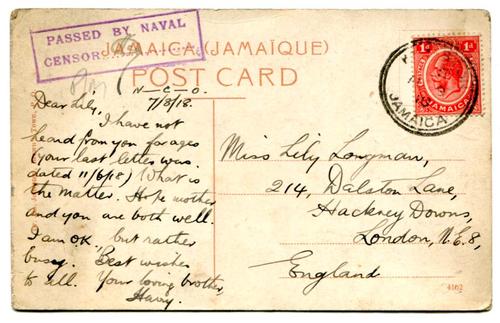 PASSED BY NAVAL
CENSOR
JAMAICA (JAMAÏQUE)
POST CARD
N-C-O.
7/8/18.
Dear Lily,
I have not
heard from you for ages
(your last letter was
dated 11/6/18) What is
the matter. Hope mother
and you are both well.
I am O.K., but rather
busy. Best wishes
to all. Your loving brother,
Harry.
1d 1d
JAMAICA
JAMAICA
Miss Lily Longman,
214, Dalston Lane,
Hackney Downs,
London, N.E.8,
England
4162